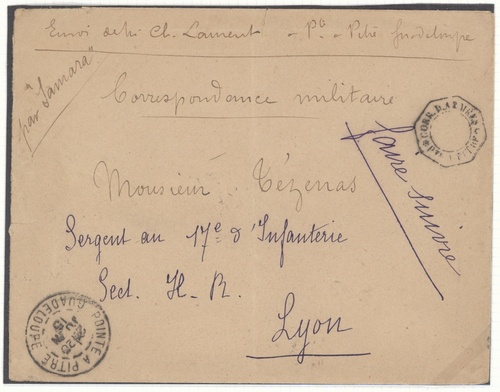 Envoi de Ch. Laurent - Pte - Pitre Guadeloupe
par "Samara"
Correspondance militaire
faire suivre
Monsieur Tézenas
Sergent au 17e d'Infanterie
Sect. H. R.
Lyon
POINTE A PITRE
GUADELOUPE